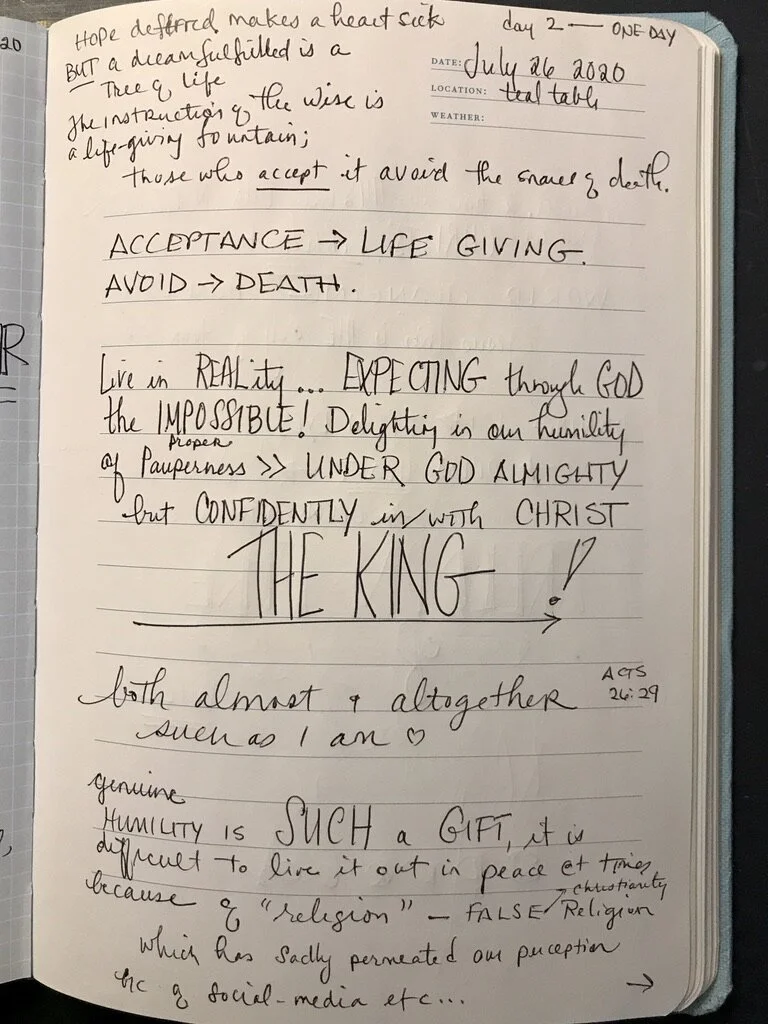 20
Hope deferred makes a heart sick
day 2 — ONE DAY
BUT a dream fulfilled is a
Tree of life
DATE: July 26 2020
LOCATION: teal table
WEATHER:
The instruction of the wise is
a life-giving fountain;
those who accept it avoid the snares of death.
ACCEPTANCE → LIFE GIVING.
AVOID → DEATH.
R
Live in REALity... EXPECTING through GOD
the IMPOSSIBLE! Delighting in our humility
proper
of Pauperness >> UNDER GOD ALMIGHTY
but CONFIDENTLY in/with CHRIST
THE KING!
→
both almost & altogether
ACTS
26:29
such as I am ♡
genuine
HUMILITY IS SUCH a GIFT, it is
difficult to live it out in peace @ times
because of "religion" — FALSE Religion
christianity
which has sadly permeated our perception
bc of social-media etc...
→